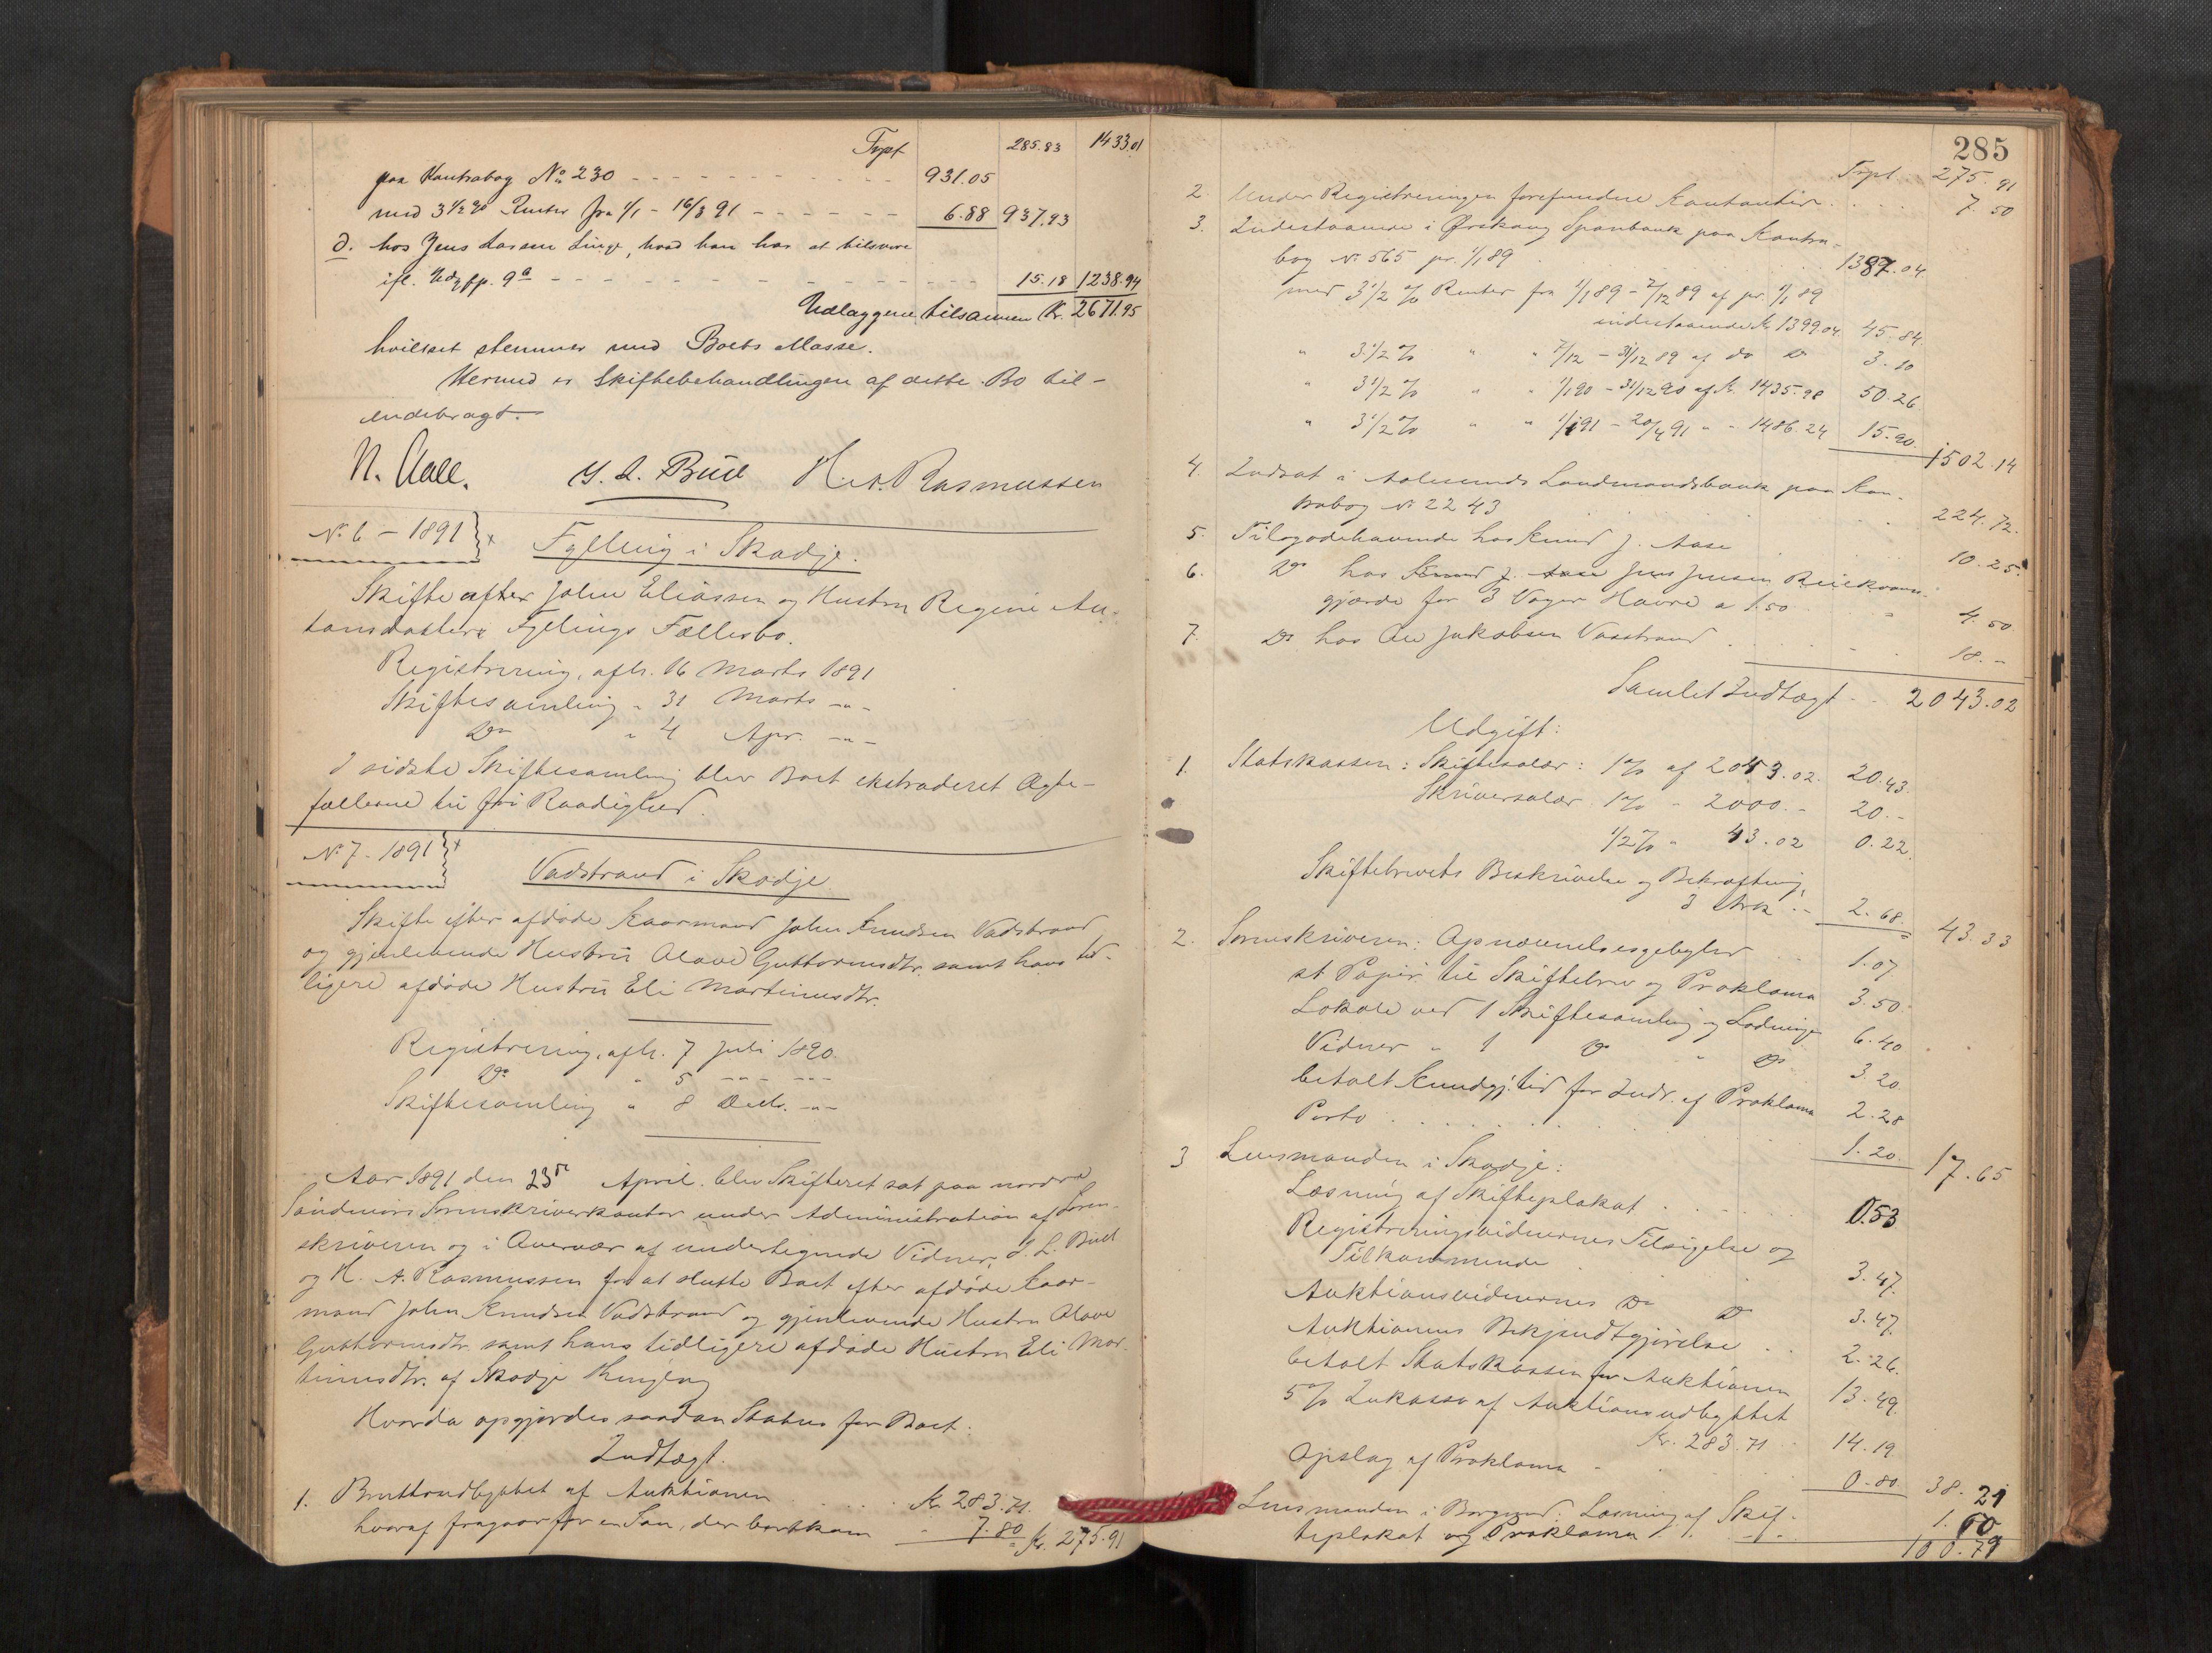 Trpt 285.83 1433.01
paa Kontrabog No 230 - - - 931.05
med 3 1/2 % Renter fra 1/1 - 16/3 91 - - - 6.88 937.93
d. hos Jens Lassen Linge, hvad han har at tilsvare
ifl. Udg pp. 9a - - - 15.18 1238.94
Udlæggene tilsammen Kr. 2671.95
hvilket stemmer med Boets Masse.
Hermed er Skiftebehandlingen af dette Bo til-
endebragt.
N. Aall. J. L. Buch H. A. Rasmussen
No 6 - 1891
Fylling i Skodje.
Skifte efter John Eliassen og Hustru Regine An-
tonsdatter Fyllings Fællesbo.
Registrering, afh. 16 Marts 1891
Skiftesamling " 31 Marts -"-
Do " 4 Apr. -"-
I sidste Skiftesamling blev Boet ekstraderet Ægte-
fællerne til fri Raadighed.
No 7 - 1891
Vadstrand i Skodje
Skifte efter afdøde Kaarmand John Knudsen Vadstrand
og gjenlevende Hustru Olave Guttormsdtr. samt hans tid-
ligere afdøde Hustru Eli Martinusdtr.
Registrering, afh. 7 Juli 1890
Do " 5 -"- -"-
Skiftesamling " 8 Decb. -"-
Aar 1891 den 23de April blev Skifteret sat paa nordre
Søndmørs Sorenskriverkontor under Administration af Soren-
skriveren og i Overvær af undertegnede Vidner, J. L. Buch
og H. A. Rasmussen for at slutte Boet efter afdøde Kaar-
mand John Knudsen Vadstrand og gjenlevende Hustru Olave
Guttormsdtr. samt hans tidligere afdøde Hustru Eli Mar-
tinusdtr. af Skodje Thinglag
Hvorda opgjordes saadan Status for Boet.
Indtægt.
1. Bruttoudbyttet af Auktionen . . . . Kr. 283.71
hvoraf fragaar for en Sau, der bortkom " 7.80 Kr. 275.91
285
Trpt. 275.91
2. Under Registreringen forefundne Kontanter . . . 7.50
3. Indestaaende i Ørskoug Sparebank paa Kontra-
bog No 565 pr. 1/1 89 1387.04
med 3 1/2 % Renter fra 1/1 89 - 7/12 89 af pr. 1/1 89
indestaaende Kr 1399.04 45.84
" 3 1/2 % " " 7/12 - 31/12 89 af do Do 3.10
" 3 1/2 % " " 1/1 90 - 31/12 90 af Kr. 1435.98 50.26
" 3 1/2 % " " 1/1 91 - 20/4 91 " - 1486.24 15.90 1502.14
4. Indsat i Aalesunds Landmandsbank paa Kon-
trabog No 2243 224.72
5. Tilgodehavende hos Knud J. Aase 10.25
6. Do hos Knud J. Aase Jens Jensen
gjærde for 3 Voger Havre a 1.50 4.50
7. Do hos Ole Jakobsen Vasstrand 18.-
Samlet Indtægt - - 2043.02
Udgift:
1. Statskassen: Skiftesalær: 1 % af 2043.02 20.43
Skriversalær 1 % - 2000.- 20.-
1/2 % " 43.02 0.22
Skiftebrevets Beskrivelse og Bekræftning,
3 Ark - - 2.68 43.33
2. Sorenskriveren: Opnævnelsesgebyhr 1.07
st Papir til Skiftebrev og Proklama 3.50
Lokale ved 1 Skiftesamling og Slutningen 6.40
Vidner " 1 Do " Do 3.20
betalt Kundgj.tid for Indr. af Proklama 2.28
Porto . . . . 1.20 17.65
3 Lensmanden i Skodje:
Læsning af Skifteplakat . . . . . 0.53
Registreringsvidnernes Tilsigelse og
Tilkommende 3.47
Auktionsvidnernes Do Do 3.47
Auktionens Bekjendtgjørelse . . 2.26
betalt Statskassen for Auktionen 13.49
5 % Inkasso af Auktionsudbyttet
Kr. 283.71 14.19
Opslag af Proklama - 0.80 38.21
Lensmanden i Borgund: Læsning af Skif-
teplakat og Proklama 1.60
100.79